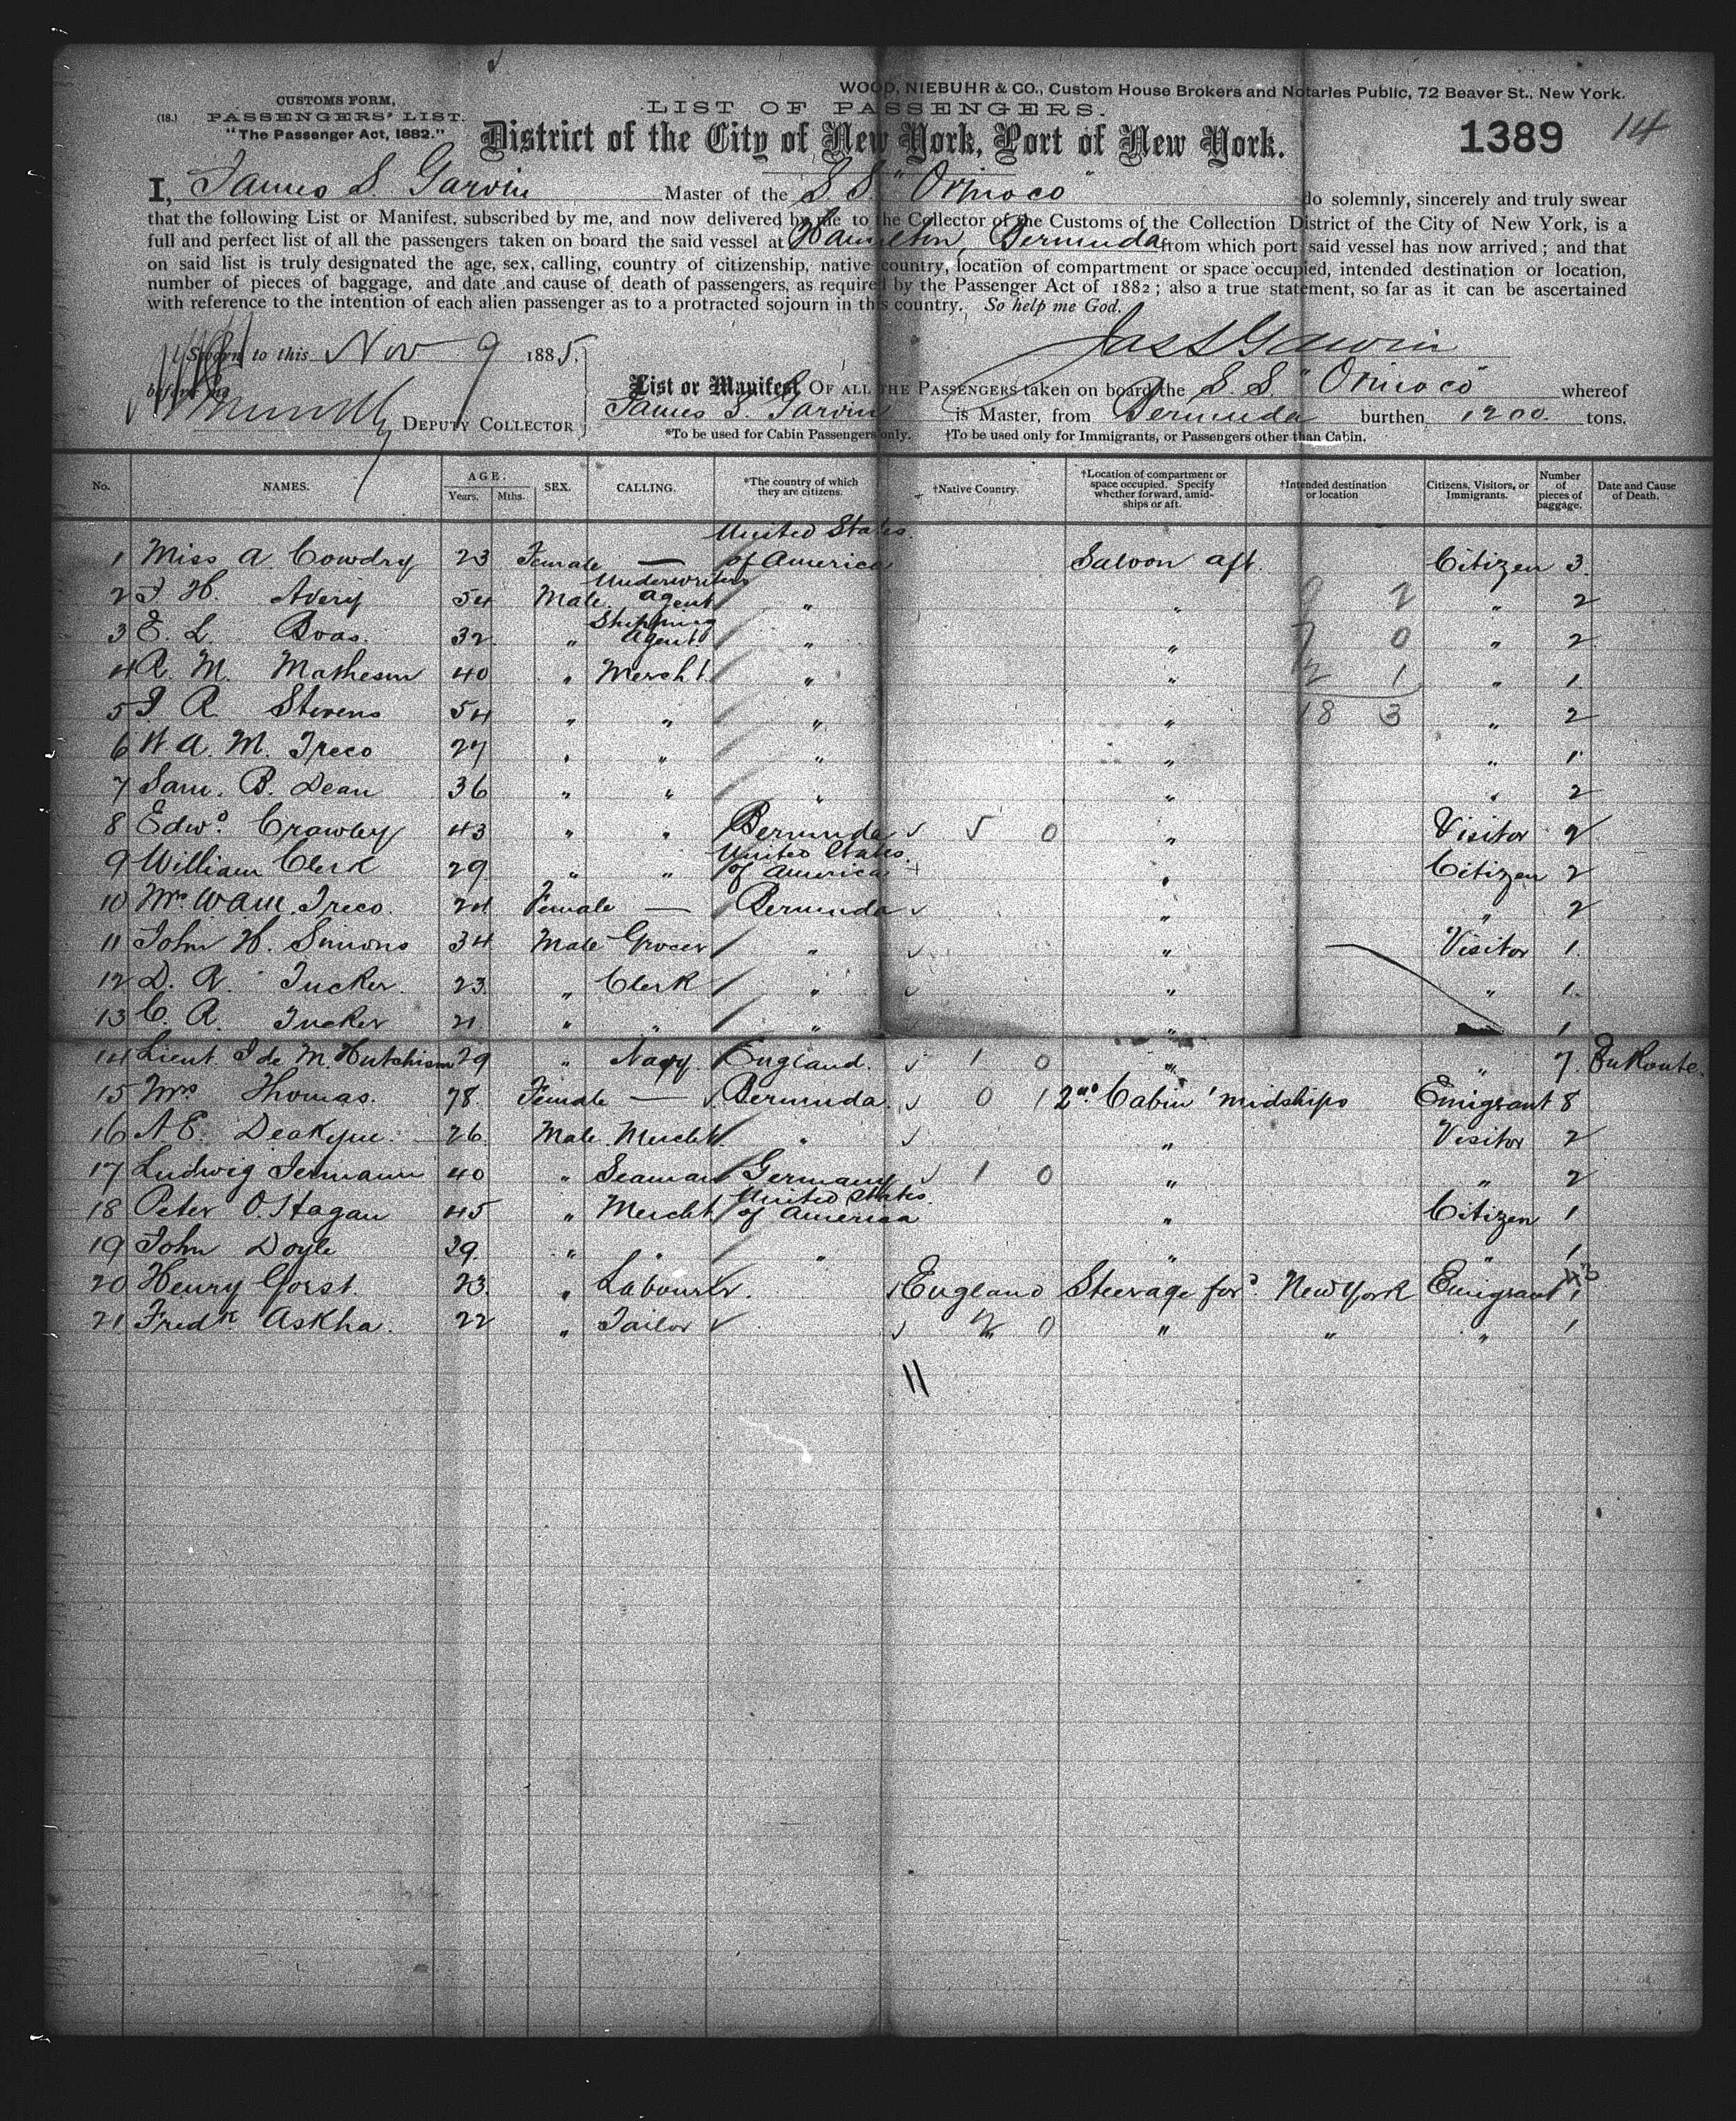 WOOD, NIEBUHR & CO., Custom House Brokers and Notaries Public, 72 Beaver St., New York.
CUSTOMS FORM,
(18.) PASSENGERS' LIST.
"The Passenger Act, 1882."
LIST OF PASSENGERS.
District of the City of New York, Port of New York.
1389 14
I, James S. Garvin Master of the S.S. "Orinoco" do solemnly, sincerely and truly swear
that the following List or Manifest, subscribed by me, and now delivered by me to the Collector of the Customs of the Collection District of the City of New York, is a
full and perfect list of all the passengers taken on board the said vessel at Hamilton, Bermuda from which port said vessel has now arrived; and that
on said list is truly designated the age, sex, calling, country of citizenship, native country, location of compartment or space occupied, intended destination or location,
number of pieces of baggage, and date and cause of death of passengers, as required by the Passenger Act of 1882; also a true statement, so far as it can be ascertained
with reference to the intention of each alien passenger as to a protracted sojourn in this country. So help me God.
Sworn to this Nov 9 1885, Jas S Garvin
before me
List or Manifest OF ALL THE PASSENGERS taken on board the S.S. "Orinoco" whereof
DEPUTY COLLECTOR James S. Garvin is Master, from Bermuda burthen 1200 tons.
*To be used for Cabin Passengers only. †To be used only for Immigrants, or Passengers other than Cabin.
No. NAMES. AGE. Years. Mths. SEX. CALLING. *The country of which they are citizens. †Native Country. †Location of compartment or space occupied. Specify whether forward, amidships or aft. †Intended destination or location Citizens, Visitors, or Immigrants. Number of pieces of baggage. Date and Cause of Death.
1 Miss A Cowdry 23 Female — United States of America Saloon aft. Citizen 3.
2 H. Avery 54 Male. Underwriters Agent " " 2 " 2
3 E. L. Boas. 32 " Shipping Agent " " 7 0 " 2
4 R. M. Matheson 40 " Mercht. " " 2 1 " 1
5 R Stevens 54 " " " " 18 3 " 2
6 A. M. Treco 27 " " " " " 1
7 Sam. B. Dean 36 " " " " " 2
8 Edwd. Crawley 43 " " Bermuda 5 0 " Visitor 2
9 William Clerk 29 " " United States of America + " Citizen 2
10 Mrs. Treco. 24 Female — Bermuda " " 2
11 John H. Simons 34 Male Grocer " " Visitor 1.
12 D. R. Tucker. 23 " Clerk " " " 1.
13 C R. Tucker 21 " " " " 1
14 Lieut. de M. Hutchison 29 " Navy. England. 1 0 " " 7. En Route.
15 Mrs Thomas. 78. Female — Bermuda. 0 1 2nd Cabin 'midships Emigrant 8
16 Deakyne. 26 Male. Mercht. " " Visitor 2
17 Ludwig 40 " Seaman Germany 1 0 " " 2
18 Peter O. Hagan 45 " Mercht United States of America " Citizen 1
19 John Doyle 29 " " " " " 1
20 Henry Gorst. 23. " Labourer. England Steerage ford. New York Emigrant 1
21 Fredk Askha. 22 " Tailor " 2 0 " " " 1
11